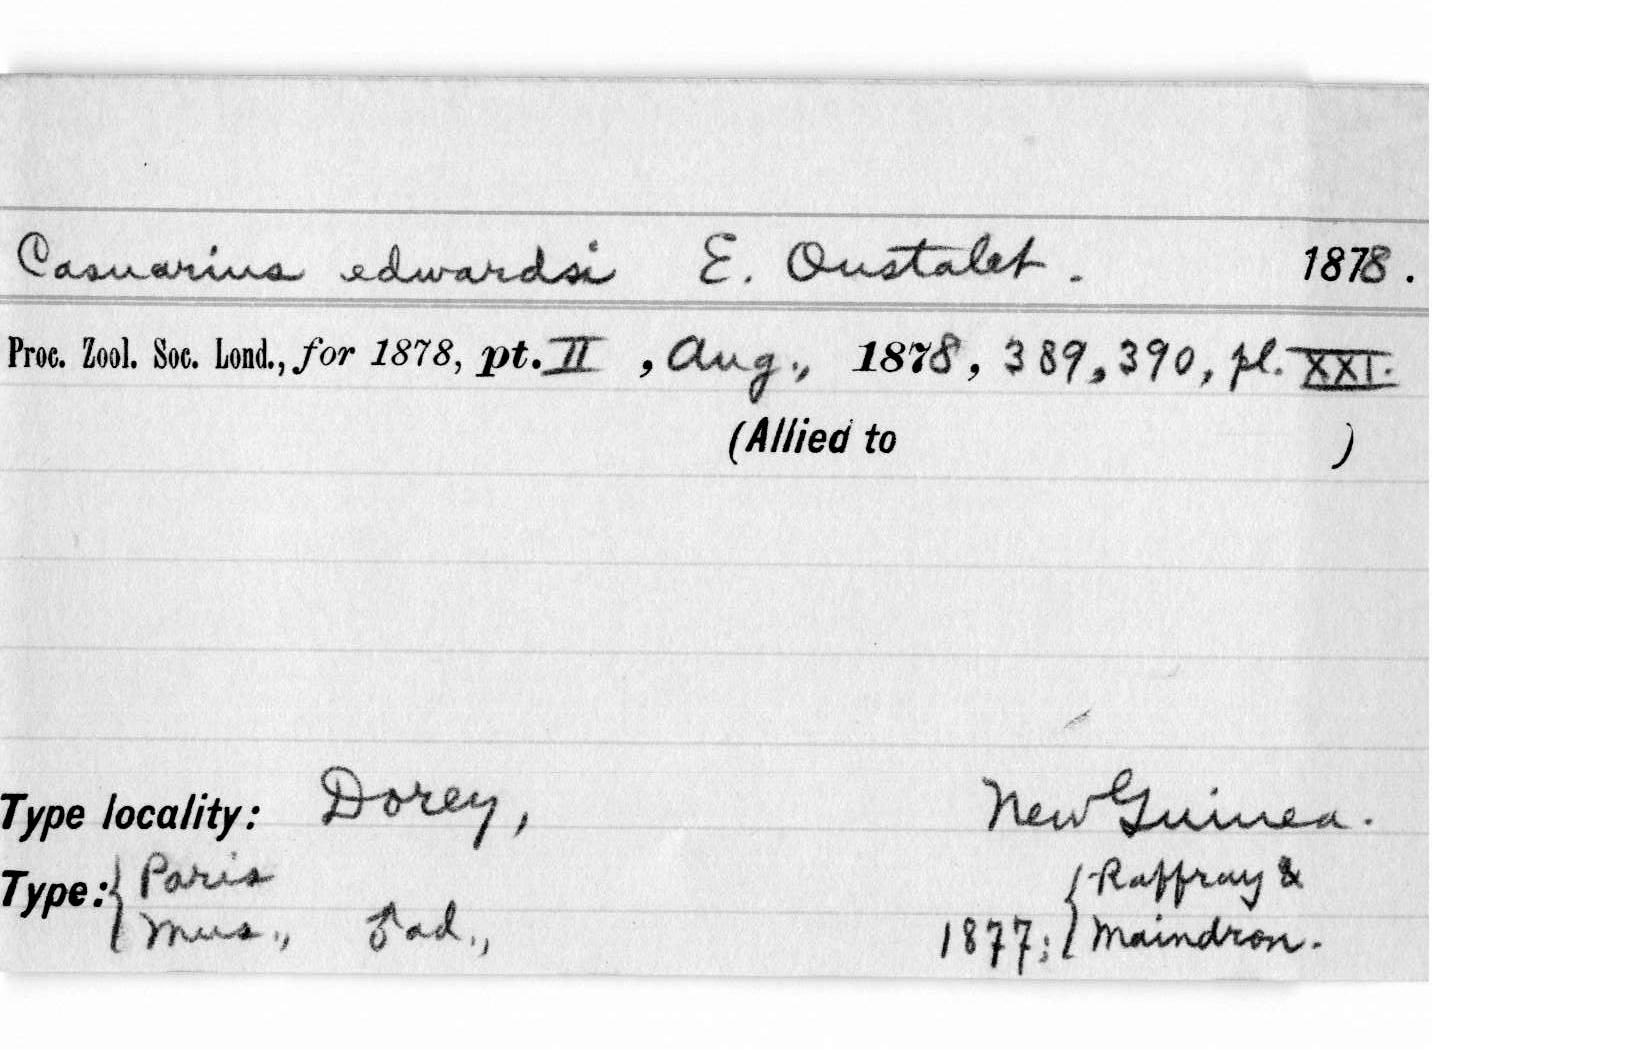 Casuarius edwardsi E. Oustalet. 1878.
Proc. Zool. Soc. Lond., for 1878, pt. II, Aug., 1878, 389, 390, pl. XXI.
(Allied to )
Type locality: Dorey, New Guinea.
Type: { Paris { Raffray &
Mus., ♂ ad., 1877; Maindron.